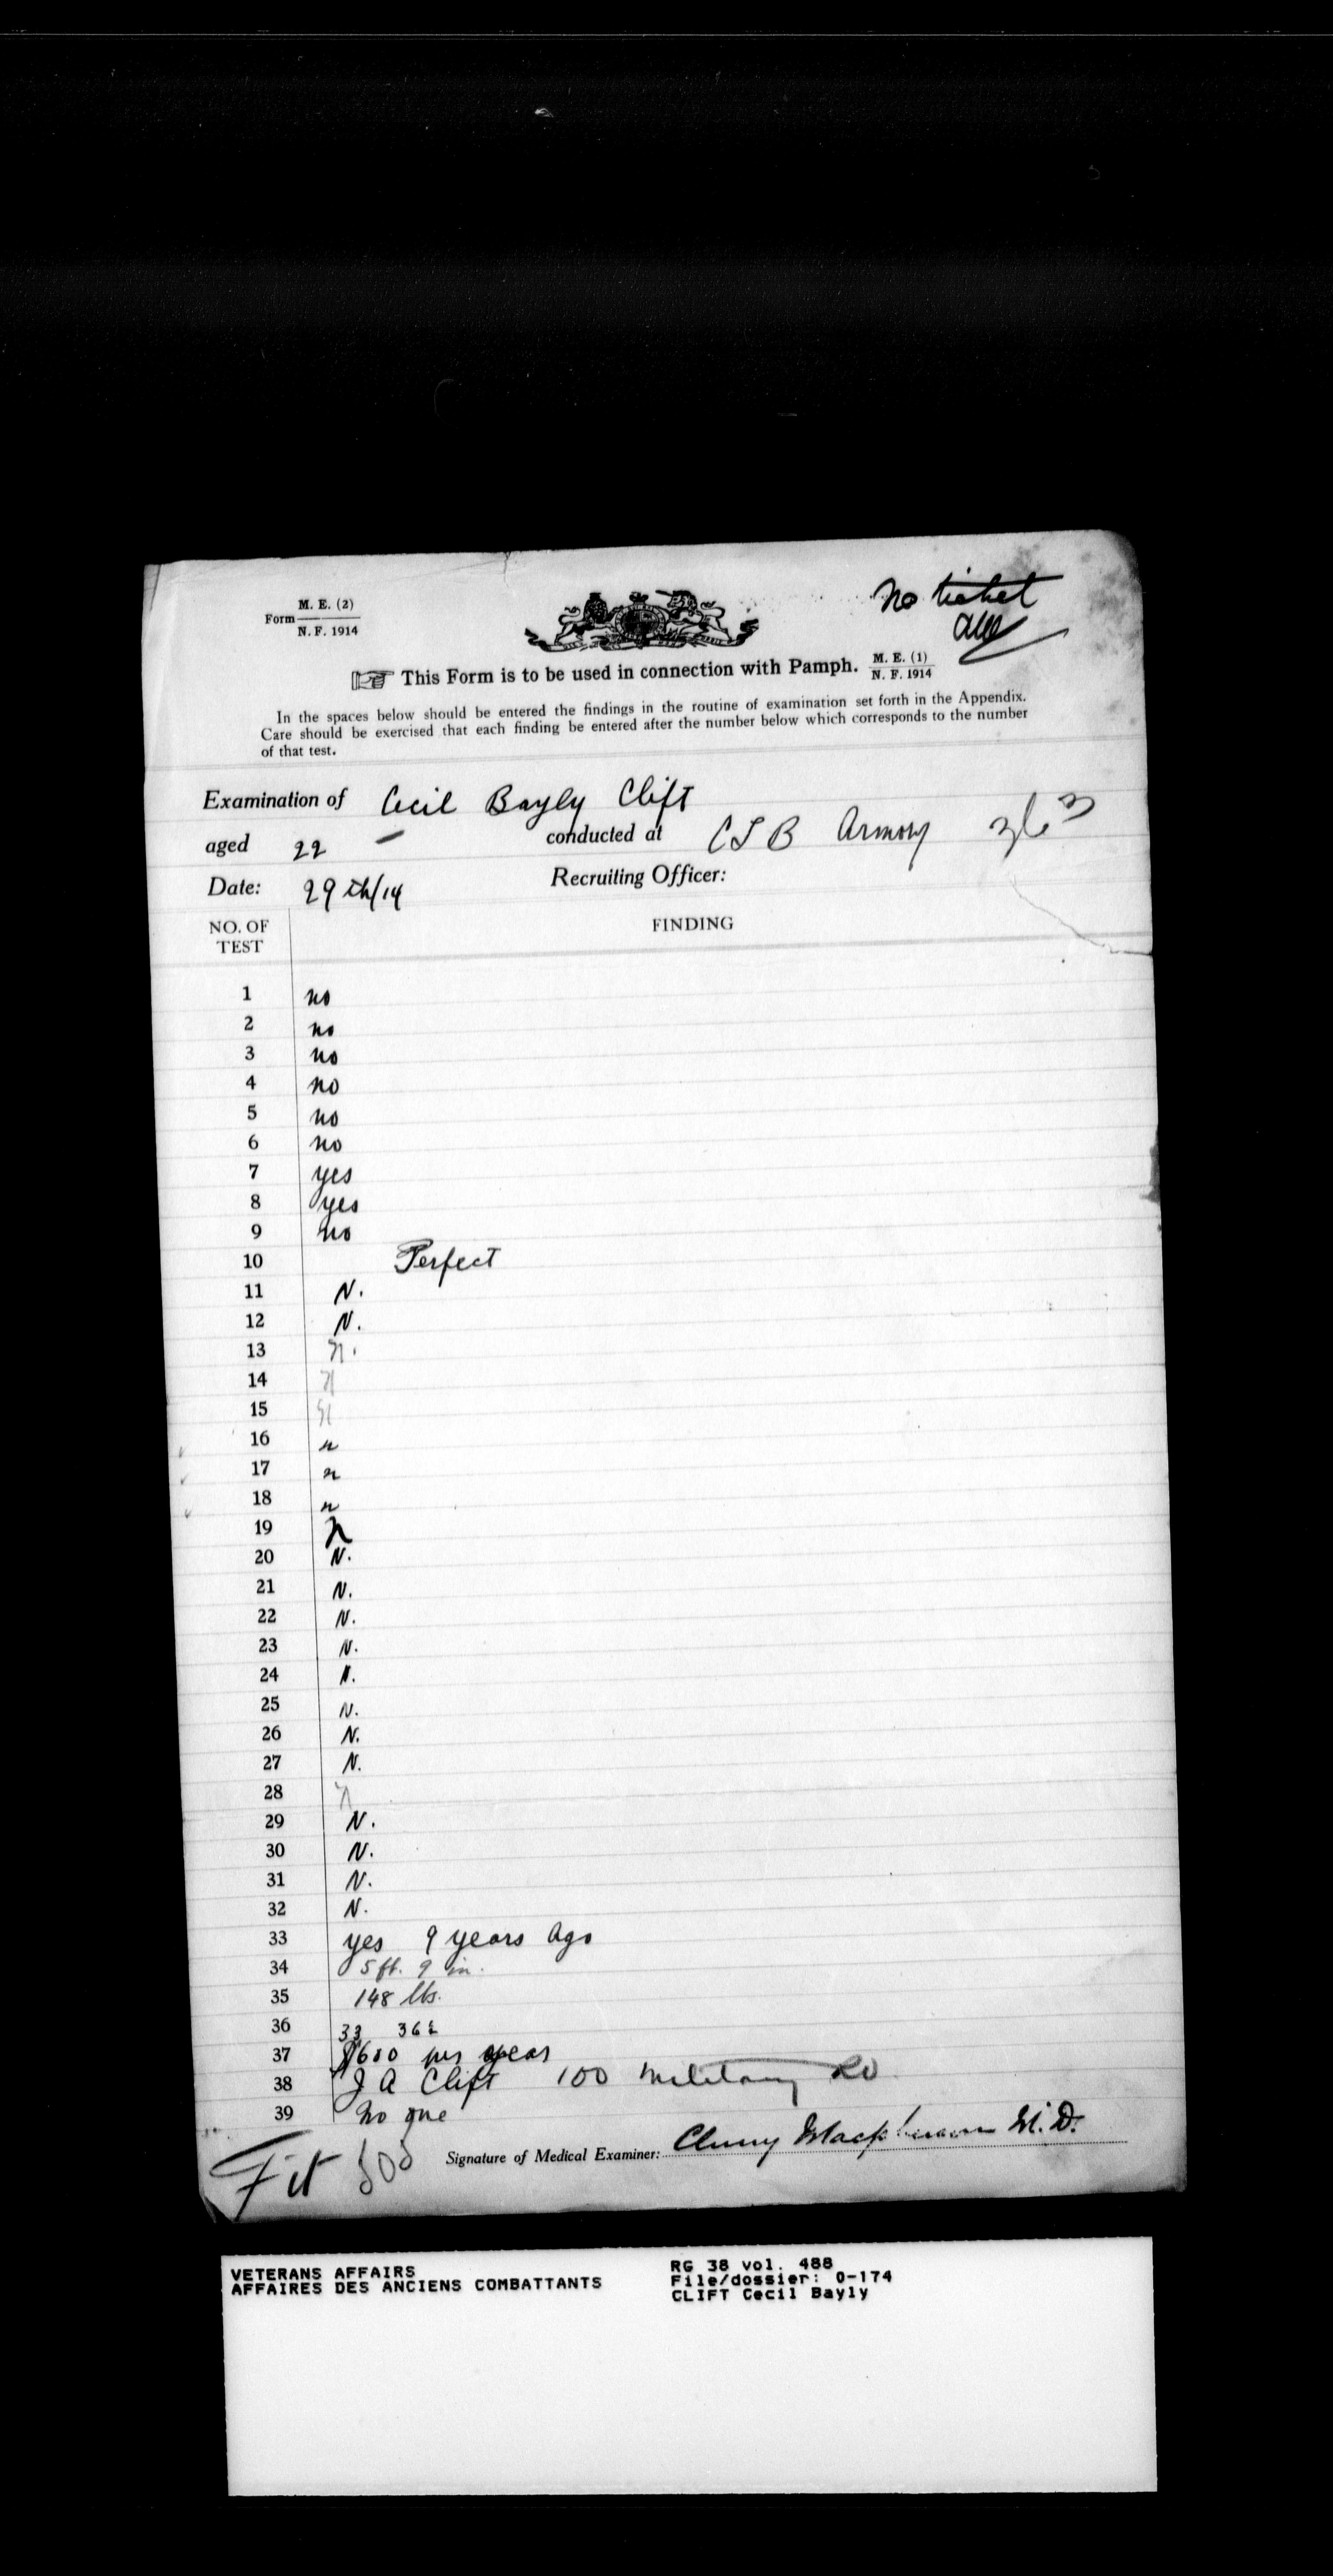 M. E. (2)
Form
N. F. 1914
no ticket
☞ This Form is to be used in connection with Pamph. M. E. (1)
N. F. 1914
In the spaces below should be entered the findings in the routine of examination set forth in the Appendix.
Care should be exercised that each finding be entered after the number below which corresponds to the number
of that test.
Examination of Cecil Bayly Clift
aged 22 – conducted at CLB Armory
Date: 29th/14 Recruiting Officer:
NO. OF
TEST
FINDING
1 no
2 no
3 no
4 no
5 no
6 no
7 yes
8 yes
9 no
10 Perfect
11 N.
12 N.
13 N.
14 N
15 N
16 n
17 n
18 n
19 N
20 N.
21 N.
22 N.
23 N.
24 N.
25 N.
26 N.
27 N.
28 N
29 N.
30 N.
31 N.
32 N.
33 yes 9 years ago
34 5 ft. 9 in.
35 148 lbs.
36 33 36½
37 $600 per year
38 J A Clift 100 Military Rd
39 No one
Fit
Signature of Medical Examiner: Cluny Macpherson M.D.
VETERANS AFFAIRS
AFFAIRES DES ANCIENS COMBATTANTS
RG 38 vol. 488
File/dossier: 0-174
CLIFT Cecil Bayly